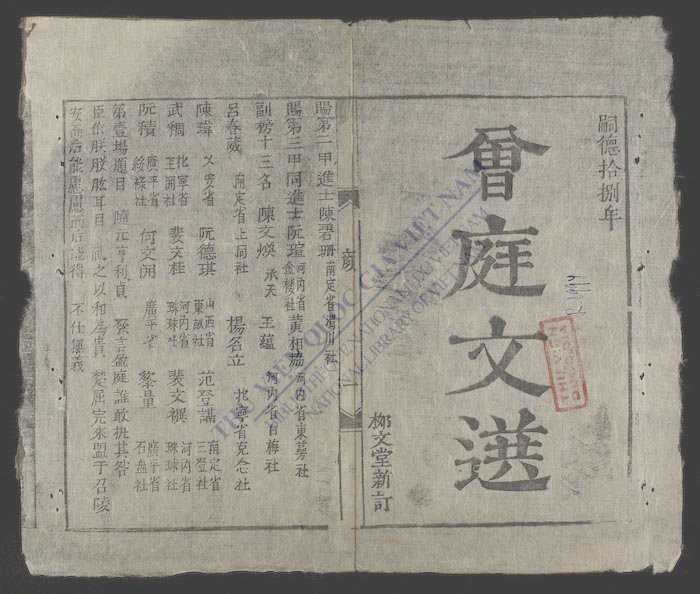 嗣德拾捌年
會庭文選
柳文堂新訂
賜第二甲進士陳碧珊 南定省 社
賜第三甲同進士阮瑄 河內省金縷社 黃相協 河內省東夢社
副榜十三名 陳文煥 承天 王蘊 河內省白梅社
呂春葳 南定省上同社 楊名立 北寧省克念社
陳瑋 乂安省 阮德琪 山西省 社 范登講 南定省三登社
武稠 北寧省 社 裴文桂 河內省珠球社 裴文禩 河內省珠球社
阮積 廣平省綏祿社 何文開 廣平省 黎量 廣平省石盤社
第壹場題目 隨元亨利貞 發言盈庭誰敢執其咎
臣作朕股肱耳目 禮之以和為貴 楚屈完來盟于召陵
安而后能慮慮而后能得 不仕無義
THƯ VIỆN QUỐC GIA VIỆT NAM
BIBLIOTHÈQUE NATIONALE DU VIETNAM
NATIONAL LIBRARY OF VIETNAM